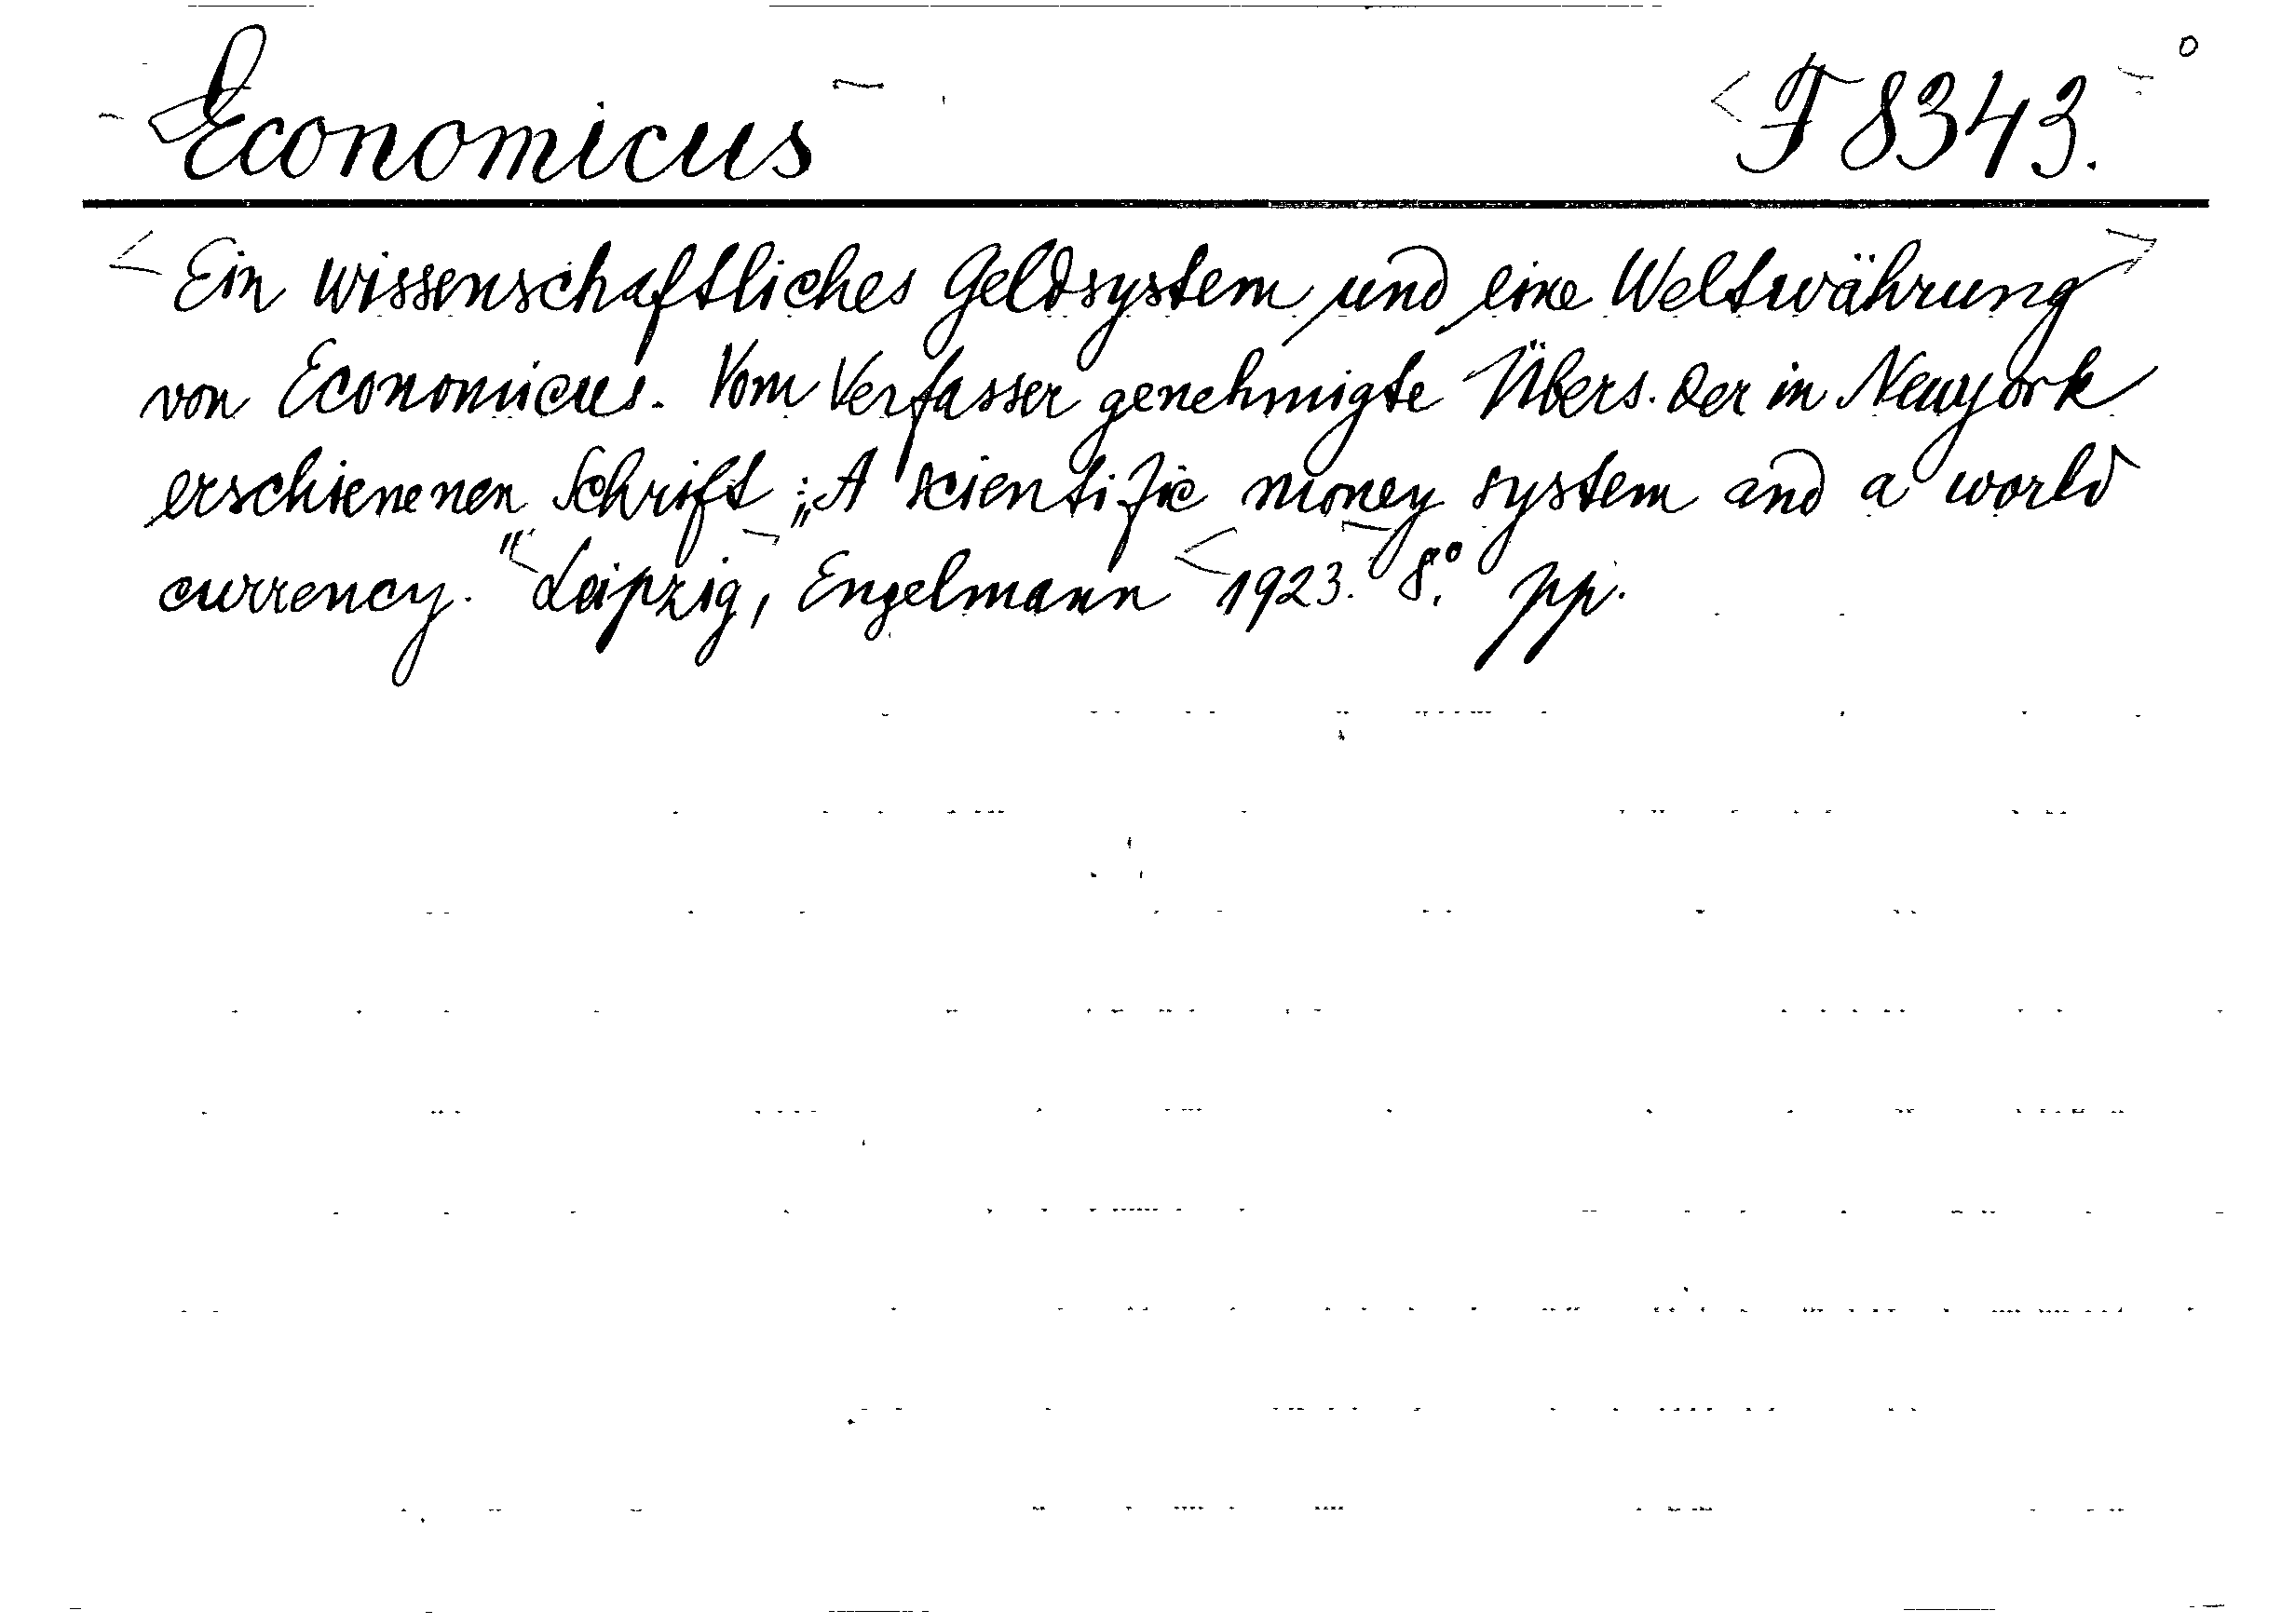 Economicus F 8343.
Ein wissenschaftliches Geldsystem und eine Weltwährung
von Economicus. Vom Verfasser genehmigte Übers. der in Newyork
erschienenen Schrift: „A scientific money system and a world
currency." Leipzig, Engelmann 1923. 8.° pp.